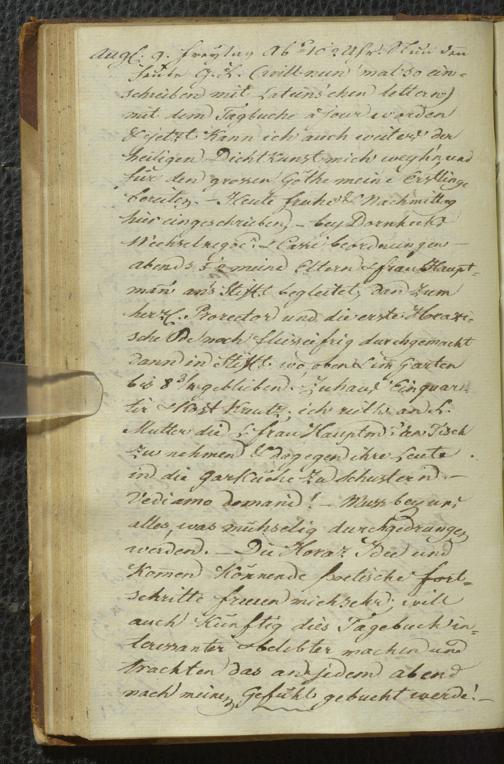 Augst. 9. Freytag Ab. 10 Uhr. Nun den
heute G. L. (will nun mal so ein-
schreiben mit Latein'schen lettern)
mit dem Tagbuche a jour worden
& jetzt kann ich auch weiters der
heiligen Dichtkunst mich weyh'n und
für den grossen Göthe meine Erstlinge
bereiten. – Heute frühe & Nachmittag
hier eingeschrieben, – bey Dornheck's
Wechselregr. & Cassi beordnungen –
abends 5 meine Eltern & frau Haupt-
man ans Stift begleitet, dan zum
herzl. Prorector und die erste Horazi-
sche Ode noch fliseifrig durchgemacht
dann in Stift, wo oben & im Garten
bis 8 geblieben. Zuhaus' Einquar-
tir Horst Kreutz; ich rieth an L.
Mutter die L. frau Hauptm. an Tisch
zu nehmen & dagegen ihre Leute
in die Garküche zu schustern –
Vediamo domani! – Muss bey uns
alles, was mühselig durchgedrungen
werden. – Die Horaz Idee und
komen könnende poetische fort-
schritte freuen mich sehr; will
auch künftig dies Tagebuch in-
teressanter & belebter machen und
trachten das an jedem abend
nach meinem Gefühl gebucht werde! –